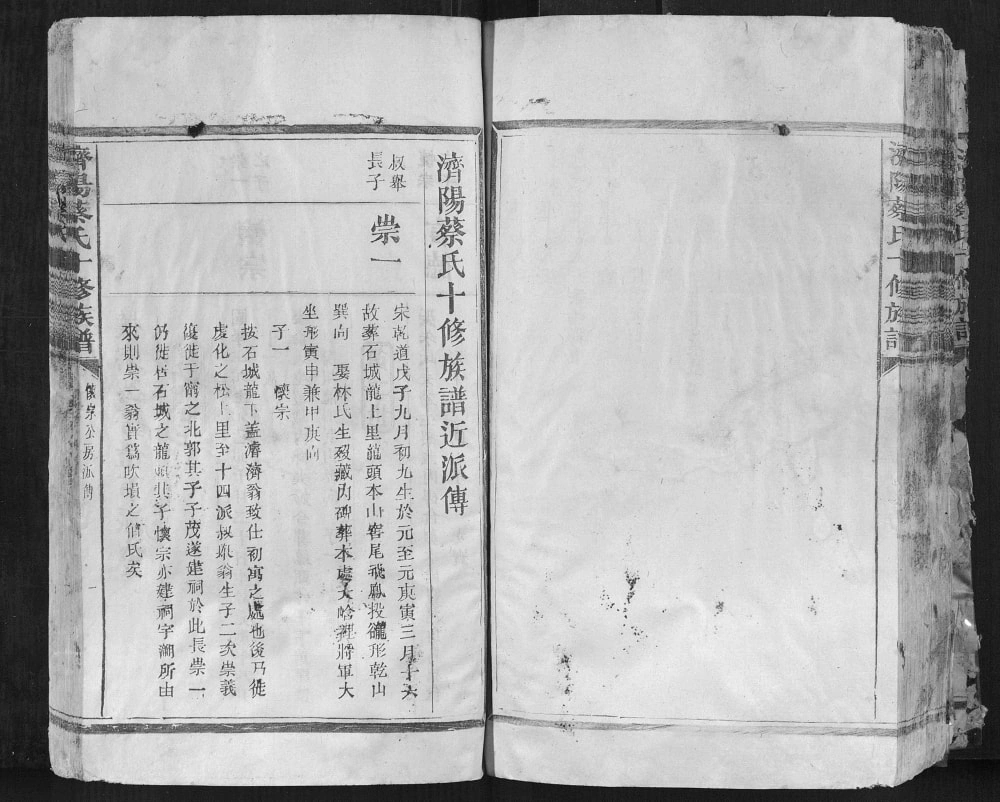 濟陽蔡氏十修族譜
濟陽蔡氏十修族譜近派傳
叔舉
長子
崇一
宋乾道戊子九月初九生於元至元庚寅三月十六
故葬石城龍上里龍頭本山窖尾飛鳳投形乾山
巽向 娶林氏生歿藏內碑葬本處大裡將軍大
坐形寅申兼甲庚向
子一 懷宗
按石城龍下蓋濬濟翁致仕初寓之處也後乃徙
虔化之松上里至十四派叔翁生子二次崇義
復徙于甯之北郭其子子茂遂建祠於此長崇一
仍徙居石城之龍頭其子懷宗亦建祠宇溯所由
來則崇一翁實為吹塤之伯氏矣
濟陽蔡氏十修族譜
懷宗公房派傳
一